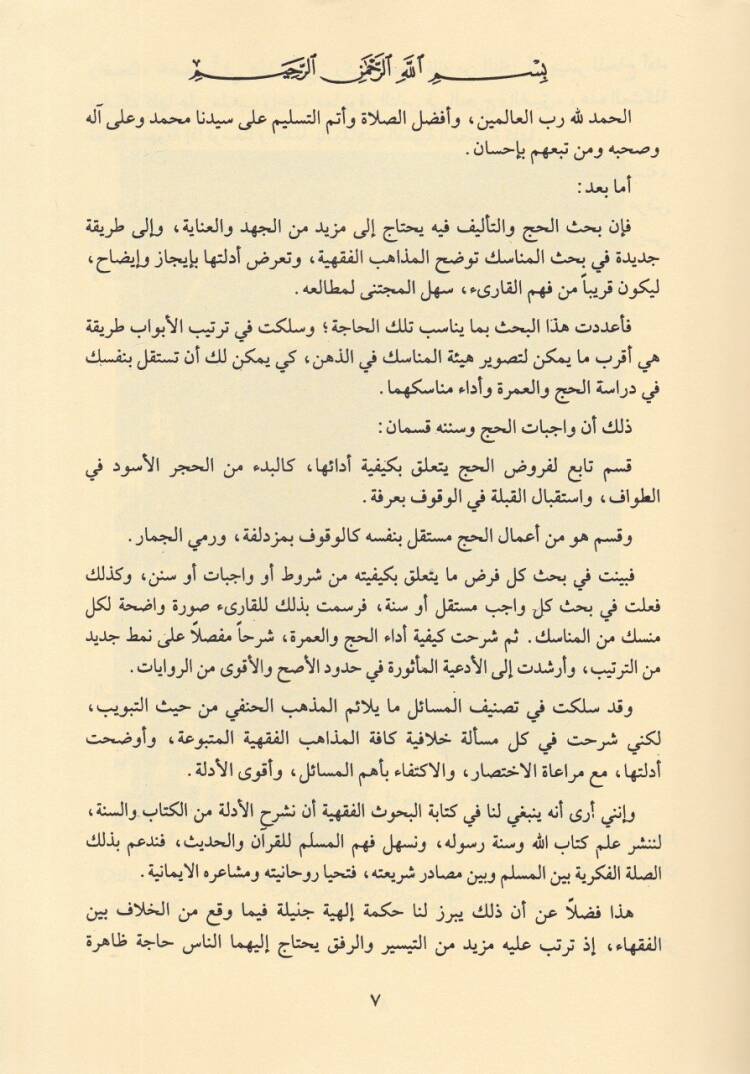 بسم الله الرحمن الرحيم
الحمد لله رب العالمين، وأفضل الصلاة وأتم التسليم على سيدنا محمد وعلى آله
وصحبه ومن تبعهم بإحسان.
أما بعد:
فإن بحث الحج والتأليف فيه يحتاج إلى مزيد من الجهد والعناية، وإلى طريقة
جديدة في بحث المناسك توضح المذاهب الفقهية، وتعرض أدلتها بإيجاز وإيضاح،
ليكون قريباً من فهم القارىء، سهل المجتنى لمطالعه.
فأعددت هذا البحث بما يناسب تلك الحاجة؛ وسلكت في ترتيب الأبواب طريقة
هي أقرب ما يمكن لتصوير هيئة المناسك في الذهن، كي يمكن لك أن تستقل بنفسك
في دراسة الحج والعمرة وأداء مناسكهما.
ذلك أن واجبات الحج وسننه قسمان:
قسم تابع لفروض الحج يتعلق بكيفية أدائها، كالبدء من الحجر الأسود في
الطواف، واستقبال القبلة في الوقوف بعرفة.
وقسم هو من أعمال الحج مستقل بنفسه كالوقوف بمزدلفة، ورمي الجمار.
فبينت في بحث كل فرض ما يتعلق بكيفيته من شروط أو واجبات أو سنن، وكذلك
فعلت في بحث كل واجب مستقل أو سنة، فرسمت بذلك للقارىء صورة واضحة لكل
منسك من المناسك. ثم شرحت كيفية أداء الحج والعمرة، شرحاً مفصلاً على نمط جديد
من الترتيب، وأرشدت إلى الأدعية المأثورة في حدود الأصح والأقوى من الروايات.
وقد سلكت في تصنيف المسائل ما يلائم المذهب الحنفي من حيث التبويب،
لكني شرحت في كل مسألة خلافية كافة المذاهب الفقهية المتبوعة، وأوضحت
أدلتها، مع مراعاة الاختصار، والاكتفاء بأهم المسائل، وأقوى الأدلة.
وإنني أرى أنه ينبغي لنا في كتابة البحوث الفقهية أن نشرح الأدلة من الكتاب والسنة،
لننشر علم كتاب الله وسنة رسوله، ونسهل فهم المسلم للقرآن والحديث، فندعم بذلك
الصلة الفكرية بين المسلم وبين مصادر شريعته، فتحيا روحانيته ومشاعره الايمانية.
هذا فضلاً عن أن ذلك يبرز لنا حكمة إلهية جنيلة فيما وقع من الخلاف بين
الفقهاء، إذ ترتب عليه مزيد من التيسير والرفق يحتاج إليهما الناس حاجة ظاهرة
٧